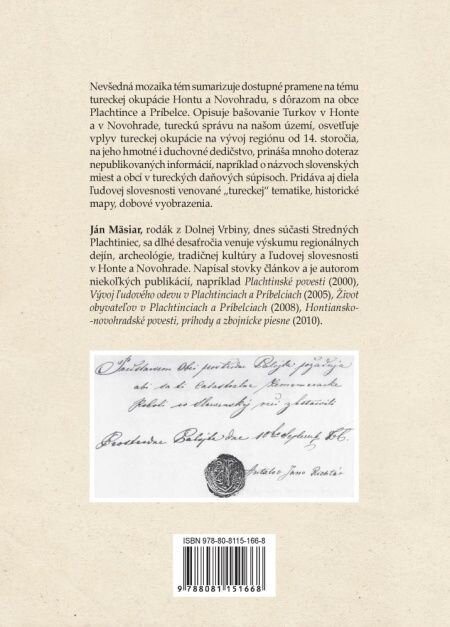 Nevšedná mozaika tém sumarizuje dostupné pramene na tému
tureckej okupácie Hontu a Novohradu, s dôrazom na obce
Plachtince a Príbelce. Opisuje bašovanie Turkov v Honte
a v Novohrade, tureckú správu na našom území, osvetľuje
vplyv tureckej okupácie na vývoj regiónu od 14. storočia,
na jeho hmotné i duchovné dedičstvo, prináša mnoho doteraz
nepublikovaných informácií, napríklad o názvoch slovenských
miest a obcí v tureckých daňových súpisoch. Pridáva aj diela
ľudovej slovesnosti venované „tureckej“ tematike, historické
mapy, dobové vyobrazenia.
Ján Mäsiar, rodák z Dolnej Vrbiny, dnes súčasti Stredných
Plachtiniec, sa dlhé desaťročia venuje výskumu regionálnych
dejín, archeológie, tradičnej kultúry a ľudovej slovesnosti
v Honte a Novohrade. Napísal stovky článkov a je autorom
niekoľkých publikácií, napríklad Plachtinské povesti (2000),
Vývoj ľudového odevu v Plachtinciach a Príbelciach (2005), Život
obyvateľov v Plachtinciach a Príbelciach (2008), Hontiansko-
-novohradské povesti, príhody a zbojnícke piesne (2010).
ISBN 978-80-8115-166-8
9 788081 151668